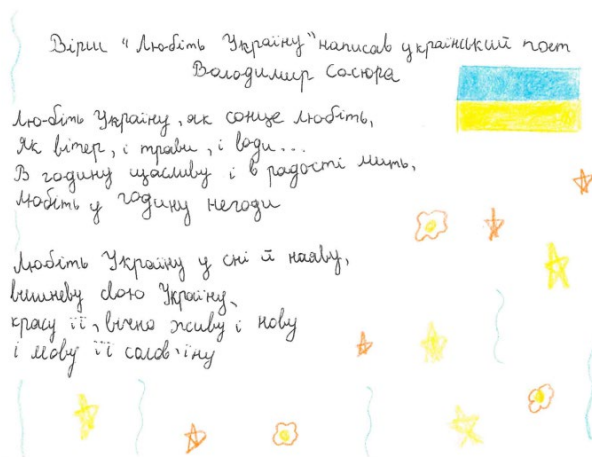 Вірш "Любіть Україну" написав український поет
Володимир Сосюра
Любіть Україну, як сонце любіть,
як вітер, і трави, і води...
В годину щасливу і в радості мить,
любіть у годину негоди
Любіть Україну у сні й наяву,
вишневу свою Україну,
красу її, вічно живу і нову
і мову її солов'їну